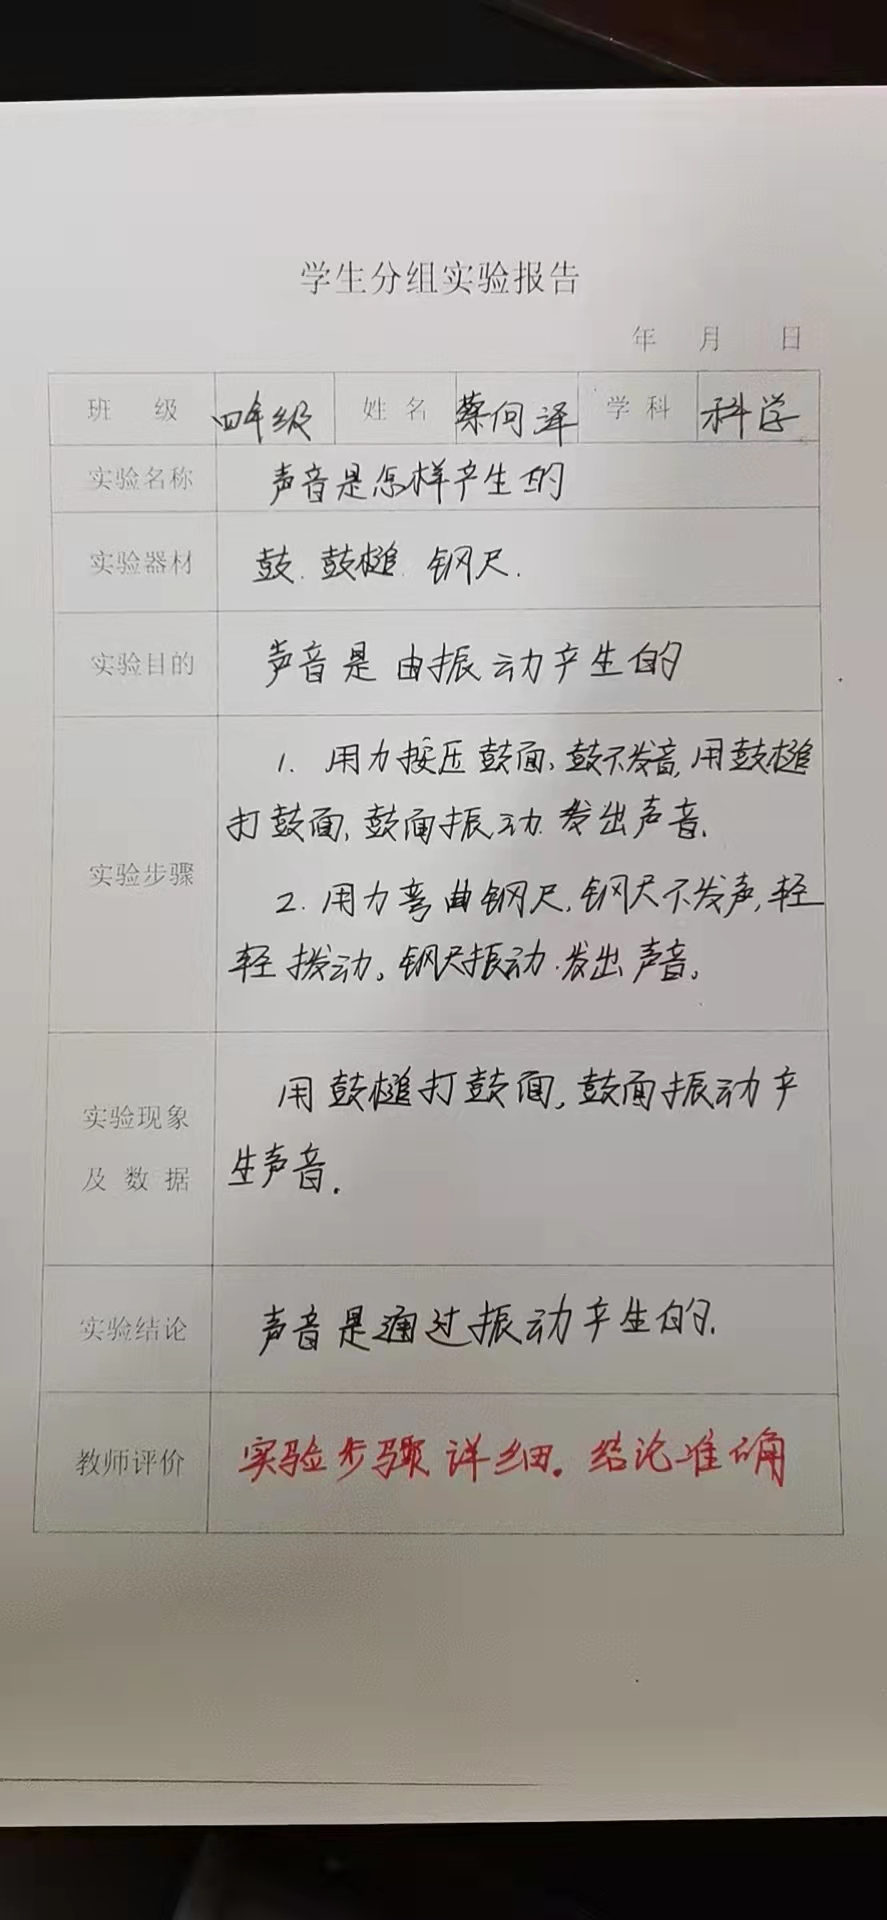 学生分组实验报告
年 月 日
班 级 四年级 姓名 蔡何泽 学科 科学
实验名称 声音是怎样产生的
实验器材 鼓.鼓槌.钢尺.
实验目的 声音是由振动产生的
1.用力按压鼓面,鼓不发音,用鼓槌
打鼓面,鼓面振动.发出声音.
实验步骤
2.用力弯曲钢尺,钢尺不发声,轻
轻拨动。钢尺振动.发出声音。
用鼓槌打鼓面,鼓面振动产
实验现象
及数据 生声音.
实验结论 声音是通过振动产生的.
教师评价 实验步骤详细。结论准确